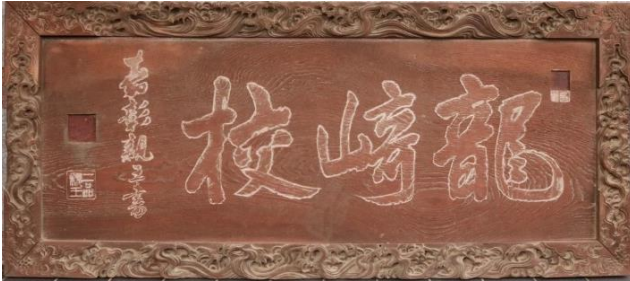 龍﨑校
嘉彰親王書